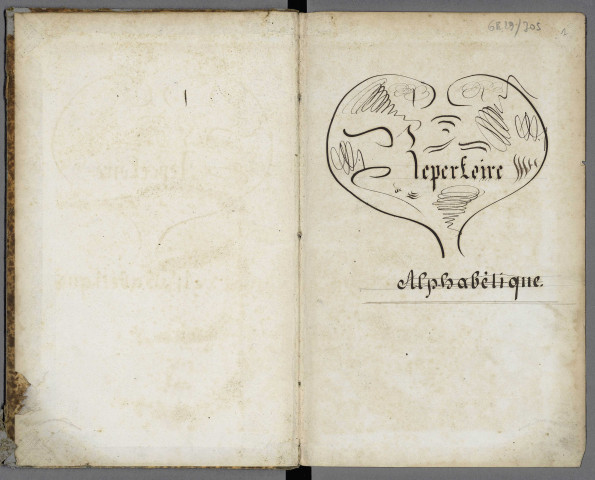 68.29/305
1
Repertoire
Alphabètique.